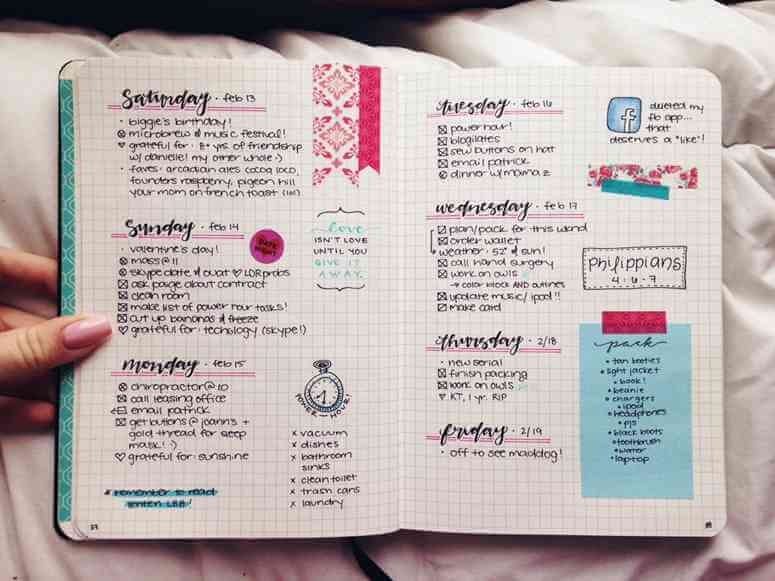 Saturday · feb 13
· biggie's birthday!
microbrew & music festival!
♡ grateful for: 8+ yrs of friendship
w/ danielle! my other whole :)
· faves: arcadian ales cocoa loco,
founders raspberry, pigeon hill
your mom on french toast (lol)
Sunday · feb 14
DATE NIGHT
· valentine's day!
mass @ 11
skype date
♡ LDR probs
ask paige about contract
clean room
make list of power hour tasks!
cut up bananas & freeze
♡ grateful for: techology (skype!)
Love
ISN'T LOVE
UNTIL YOU
GIVE IT
AWAY.
monday · feb 15
chiropractor @ 10
call leasing office
email patrick
get buttons @ joann's +
gold thread for sleep
mask! :)
♡ grateful for: sunshine
* remember to read
lenten LBB!
37
POWER-HOUR!
x vacuum
x dishes
x bathroom
sinks
x clean toilet
x trash cans
x laundry
tuesday · feb 16
power hour!
blogilates
sew buttons on hat
email patrick
dinner w/ mama z
f
deleted my
fb app...
that
deserves a "like"!
wednesday · feb 17
plan/pack for this wknd
order wallet
weather: 52° & sun!
call hand surgery
work on owls
→ color block AND outlines
update music/ipod!!
make card
philippians
4:6-7
thursday · 2/18
· new serial
finish packing
work on owls
♡ KT, 1 yr. RIP
friday · 2/19
· off to see maddog!
pack
tan booties
light jacket
book!
beanie
chargers
ipod
headphones
pjs
black boots
toothbrush
water
laptop